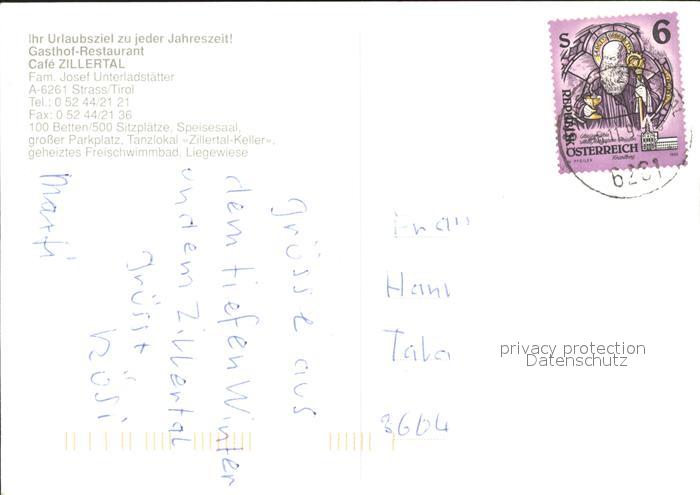 Ihr Urlaubsziel zu jeder Jahreszeit!
Gasthof-Restaurant
Café ZILLERTAL
Fam. Josef Unterladstätter
A-6261 Strass/Tirol
Tel.: 0 52 44/21 21
Fax: 0 52 44/21 36
100 Betten/500 Sitzplätze, Speisesaal,
großer Parkplatz, Tanzlokal «Zillertal-Keller»,
geheiztes Freischwimmbad, Liegewiese
Grüsse aus
dem tiefen Winter
undem Zillertal
grüsst
Rösi
Marti
S 6
REPUBLIK
ÖSTERREICH
6261
Hani
3604
privacy protection
Datenschutz